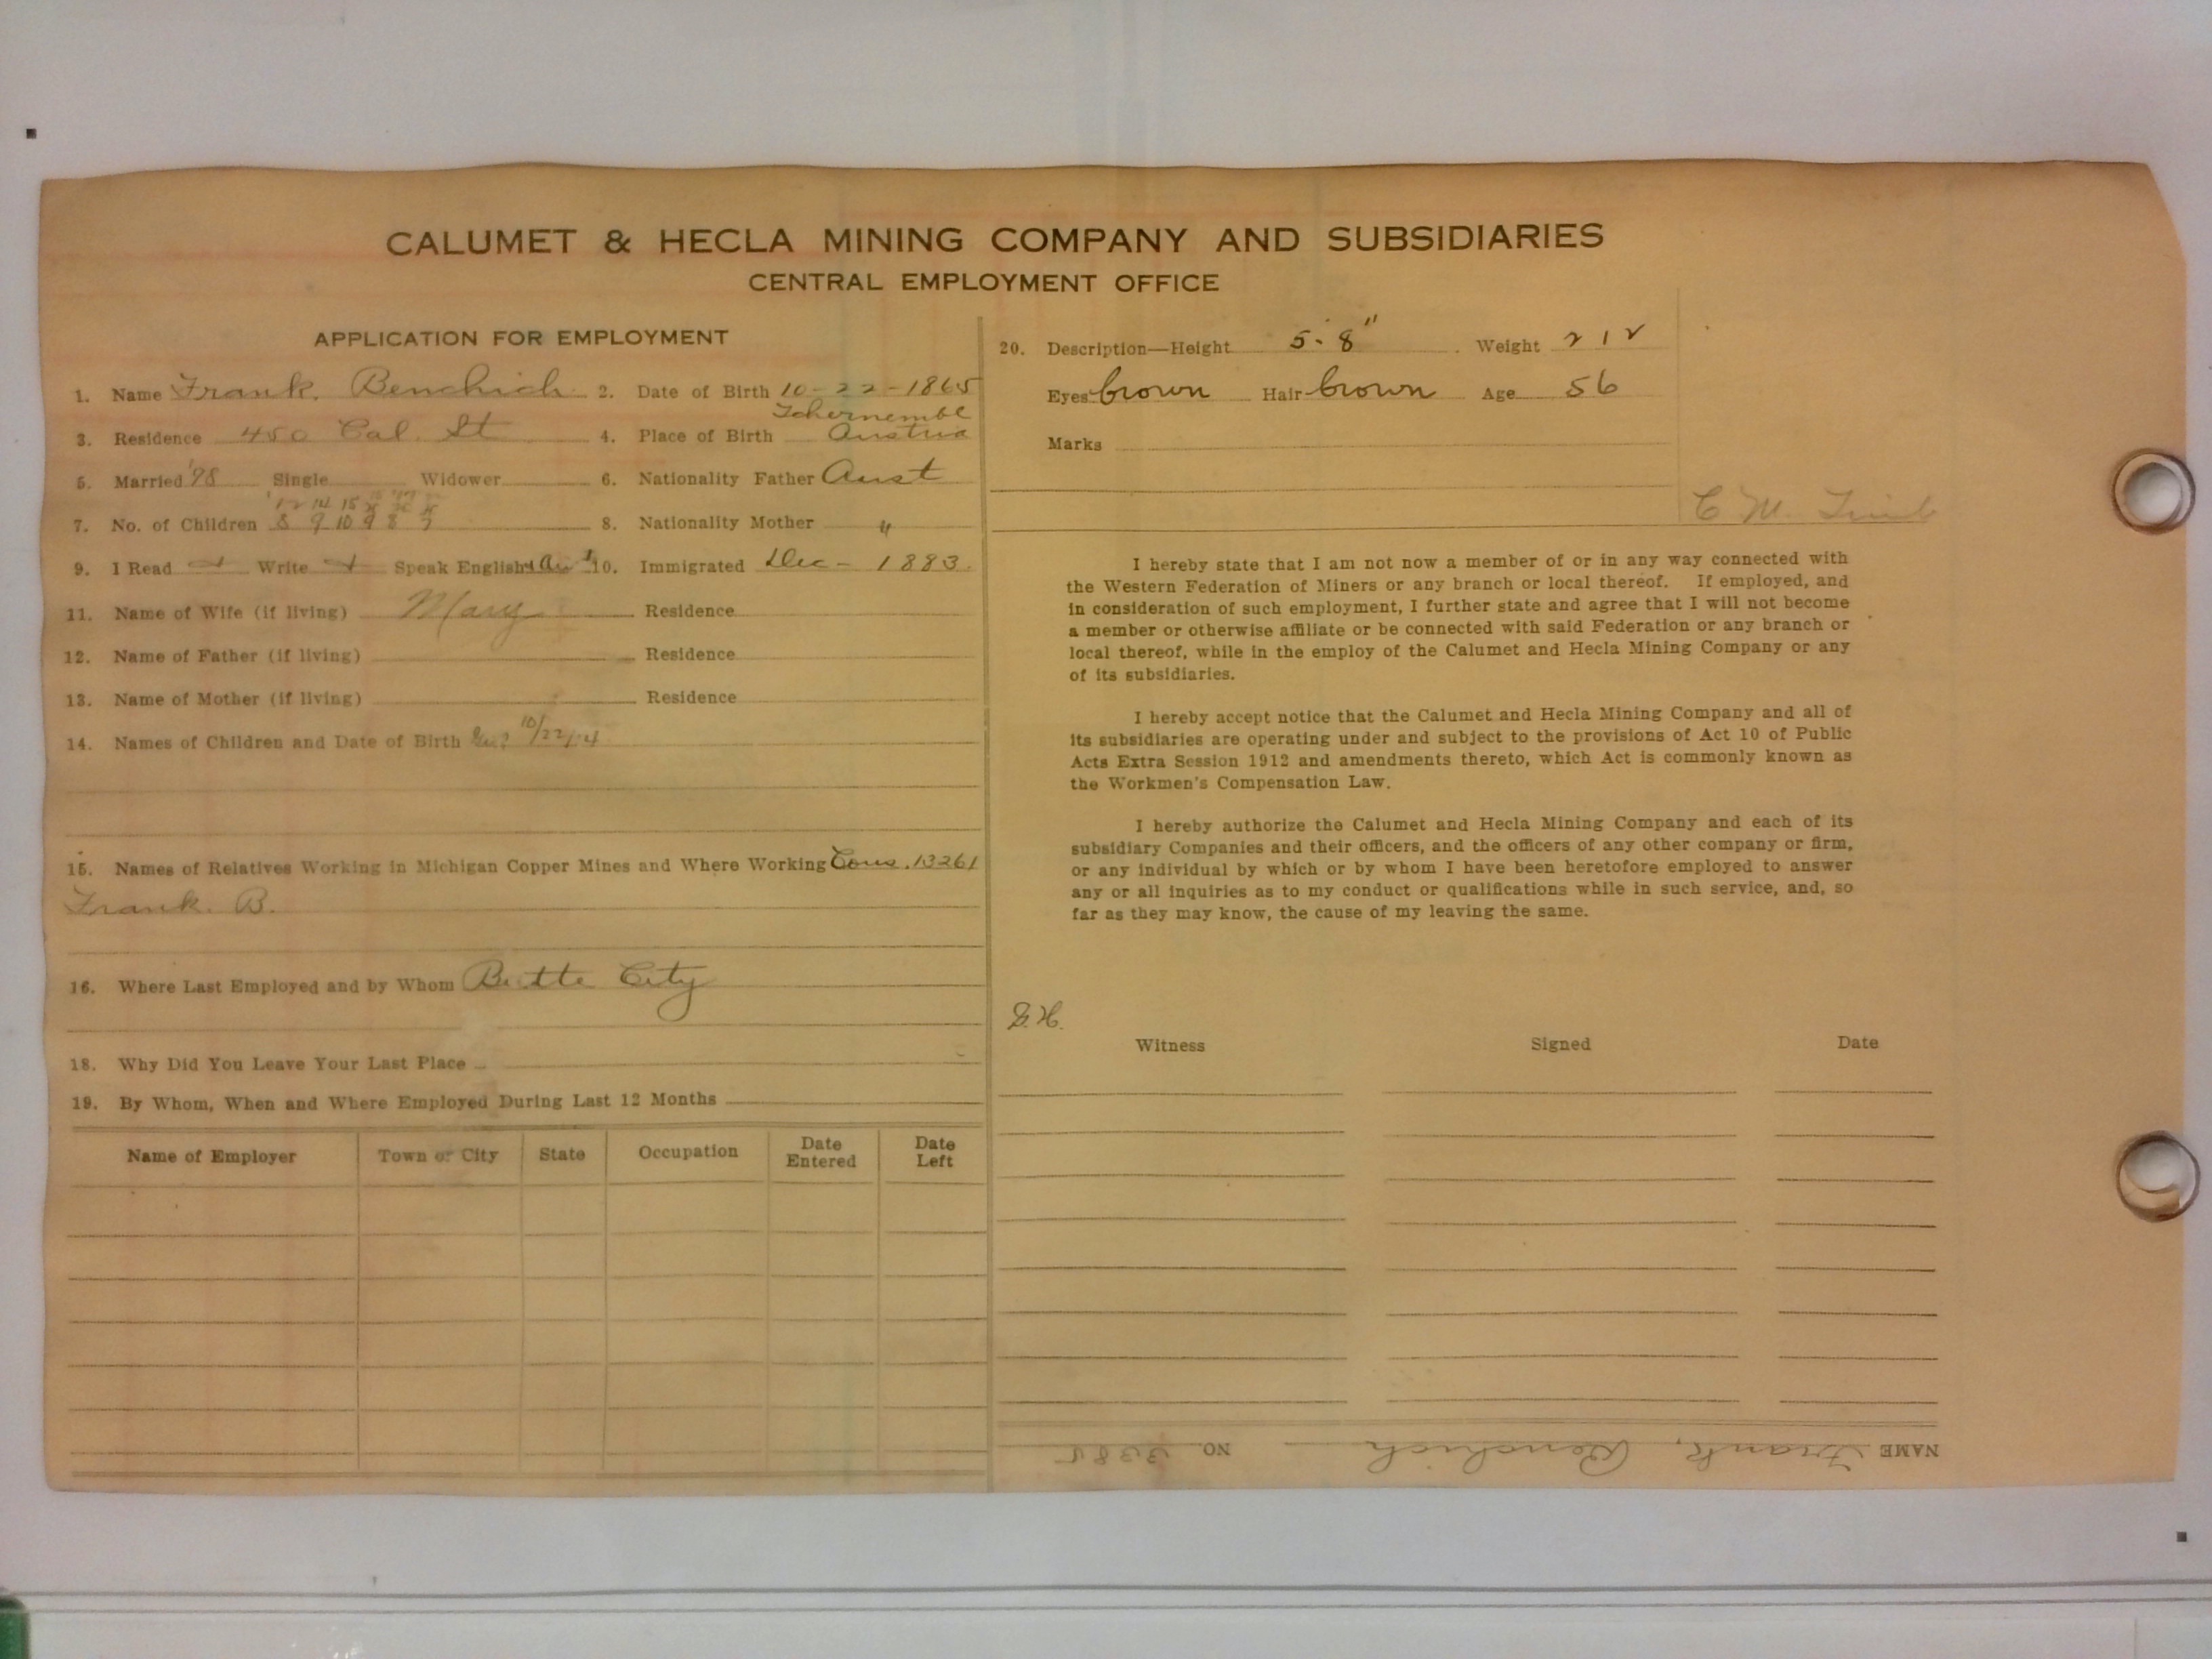 CALUMET & HECLA MINING COMPANY AND SUBSIDIARIES
CENTRAL EMPLOYMENT OFFICE
APPLICATION FOR EMPLOYMENT
1. Name Frank. Benchich 2. Date of Birth 10-22-1865
Tchernembl
3. Residence 450 Cal. St 4. Place of Birth Austria
5. Married '98 Single Widower 6. Nationality Father Aust
'12 14 15
7. No. of Children 8 9 10 9 8 7 8. Nationality Mother "
9. I Read Write Speak English 10. Immigrated Dec - 1883.
11. Name of Wife (if living) Mary Residence
12. Name of Father (if living) Residence
13. Name of Mother (if living) Residence
14. Names of Children and Date of Birth 10/22/14
15. Names of Relatives Working in Michigan Copper Mines and Where Working Cons. 13261
Frank. B.
16. Where Last Employed and by Whom Butte City
18. Why Did You Leave Your Last Place
19. By Whom, When and Where Employed During Last 12 Months
Name of Employer Town or City State Occupation Date Entered Date Left
20. Description—Height 5'8" Weight 212
Eyes brown Hair brown Age 56
Marks
C. M.
I hereby state that I am not now a member of or in any way connected with
the Western Federation of Miners or any branch or local thereof. If employed, and
in consideration of such employment, I further state and agree that I will not become
a member or otherwise affiliate or be connected with said Federation or any branch or
local thereof, while in the employ of the Calumet and Hecla Mining Company or any
of its subsidiaries.
I hereby accept notice that the Calumet and Hecla Mining Company and all of
its subsidiaries are operating under and subject to the provisions of Act 10 of Public
Acts Extra Session 1912 and amendments thereto, which Act is commonly known as
the Workmen's Compensation Law.
I hereby authorize the Calumet and Hecla Mining Company and each of its
subsidiary Companies and their officers, and the officers of any other company or firm,
or any individual by which or by whom I have been heretofore employed to answer
any or all inquiries as to my conduct or qualifications while in such service, and, so
far as they may know, the cause of my leaving the same.
S.H.
Witness Signed Date
NAME Frank, Benchich NO. 3385